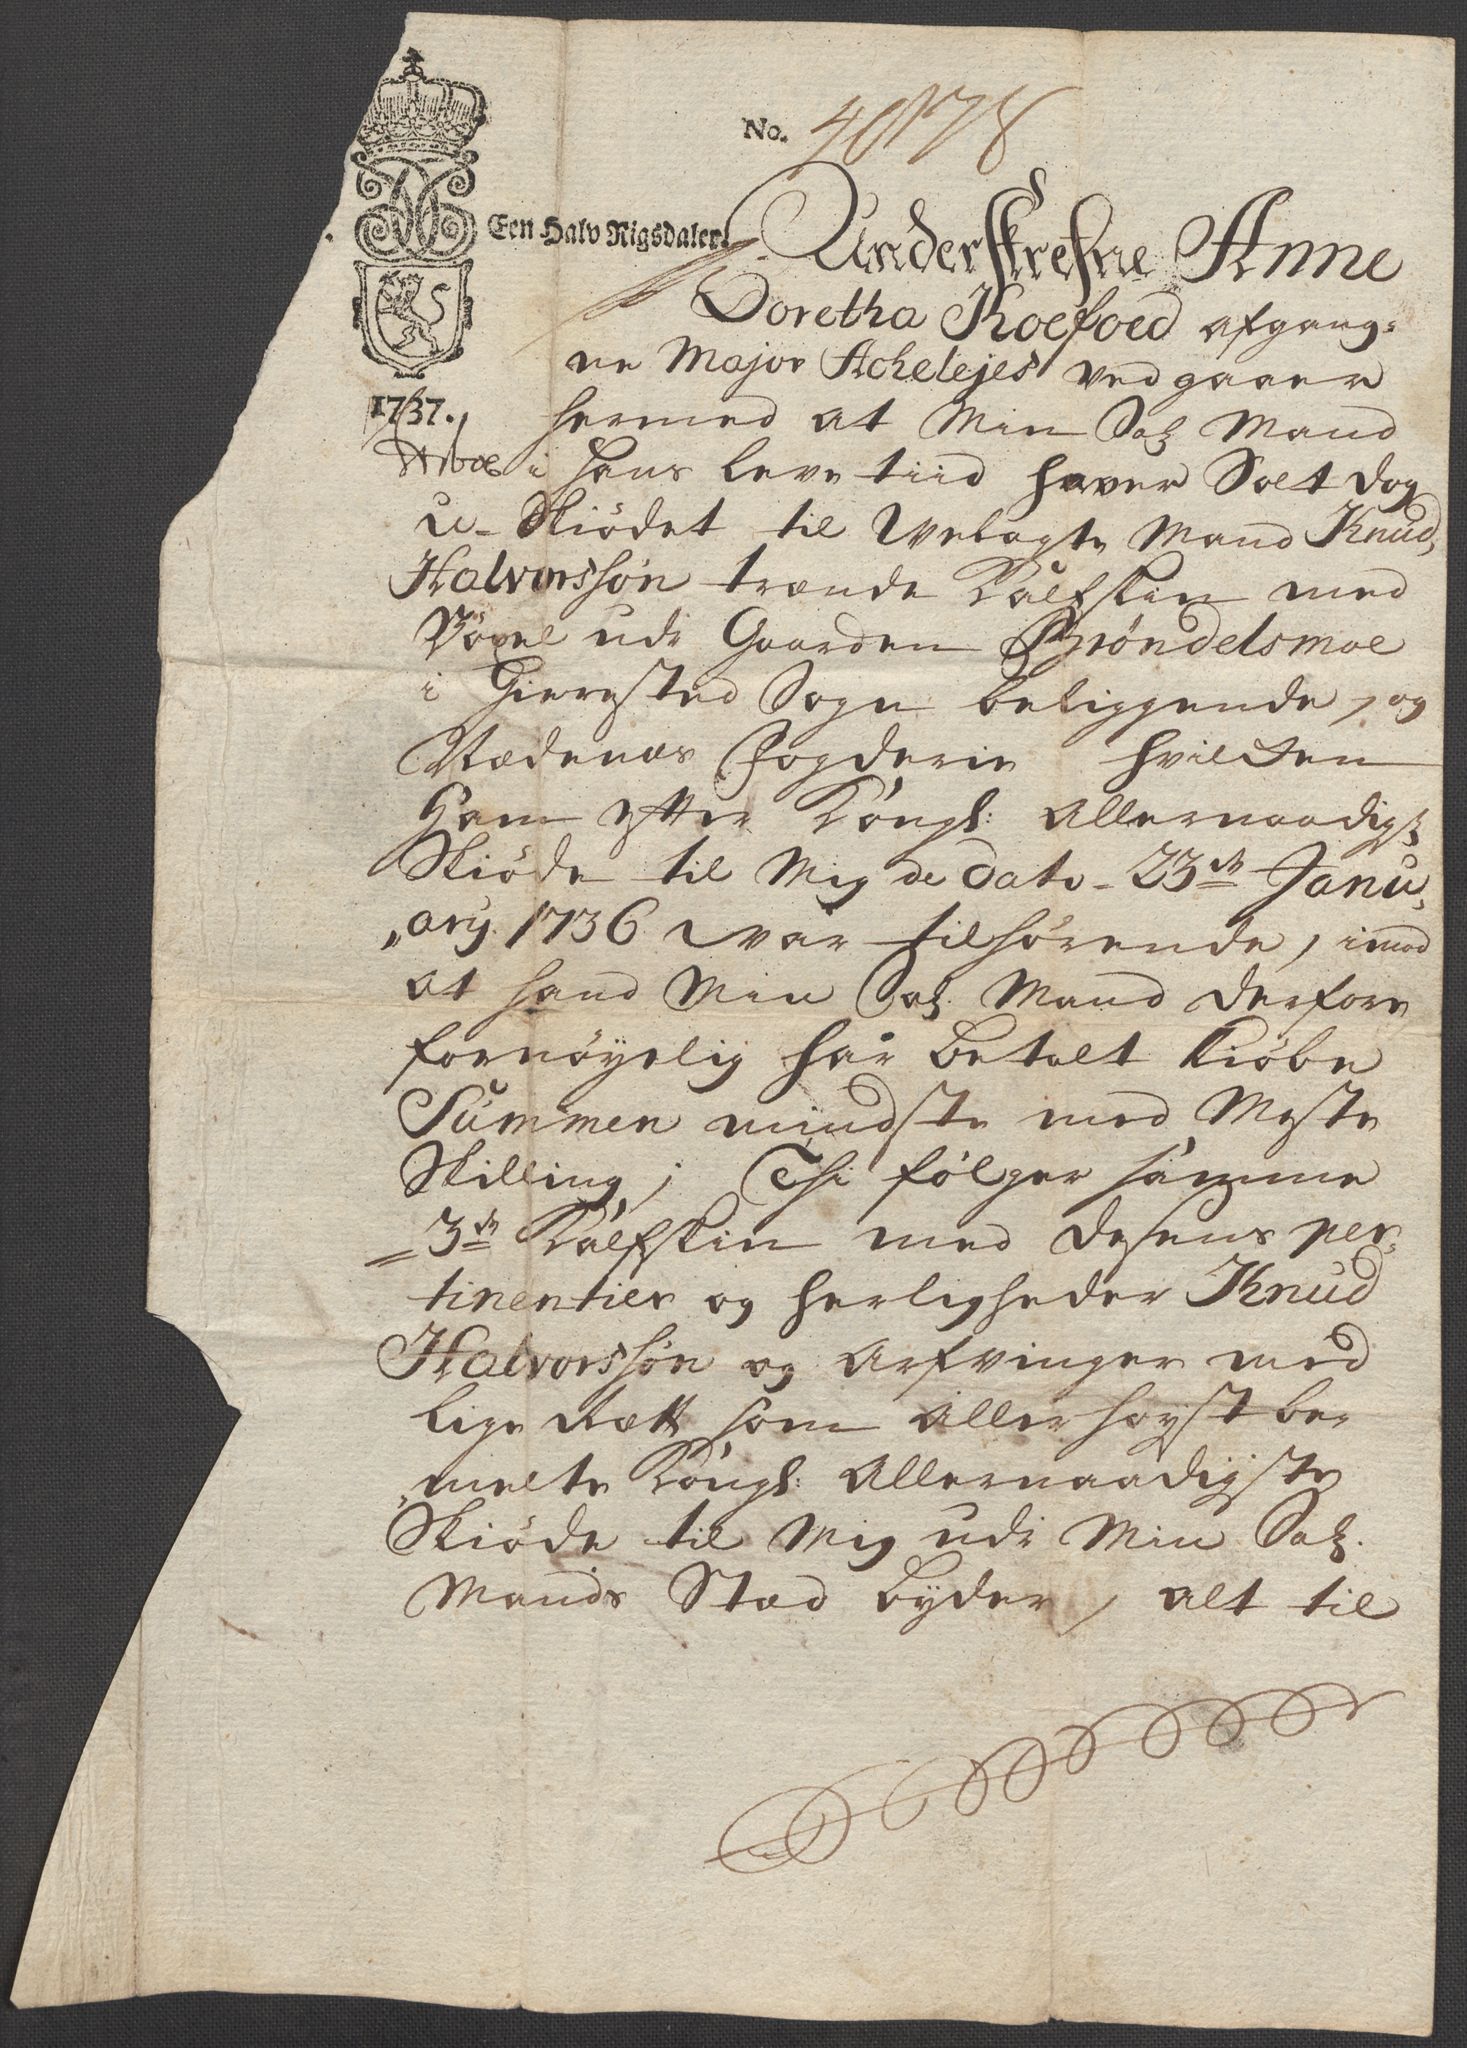 No. 40178
Een Halv Rigsdaler.
1737.
Underskrefne Anne
Doretha Koefoed afgang-
ne Major Achelejes ved gaaer
hermed at Min Sal. Mand
i hans leve tiid haver Solt dog
u-Skiödet til Velagte Mand Knud
Halvorssøn trænde Kalfskin med
Böxel udi Gaarden Brøndelsmoe
i Gierrested Sogn beliggende, og
Nædenæs Fogderie hvilken
Ham efter Kongl: Allernaadigst
Skiøde til Mig de dato 23de Janu,
,,ary. 1736 var tilhørende, imod
at hand Min Sal. Mand derfore
fornöyelig har betalt Kiöbe
Summen mindste med Meste
Skilling, Thi fölger samme
3de Kalfskin med desens per-
tinentier og herligheder Knud
Halvorssøn og Arfvinger med
lige Rætt som Aller höyst be-
melte Kongl: Allernaadigste
Skiöde til Mig udi Min Sal.
Mands Stæd byder, alt til